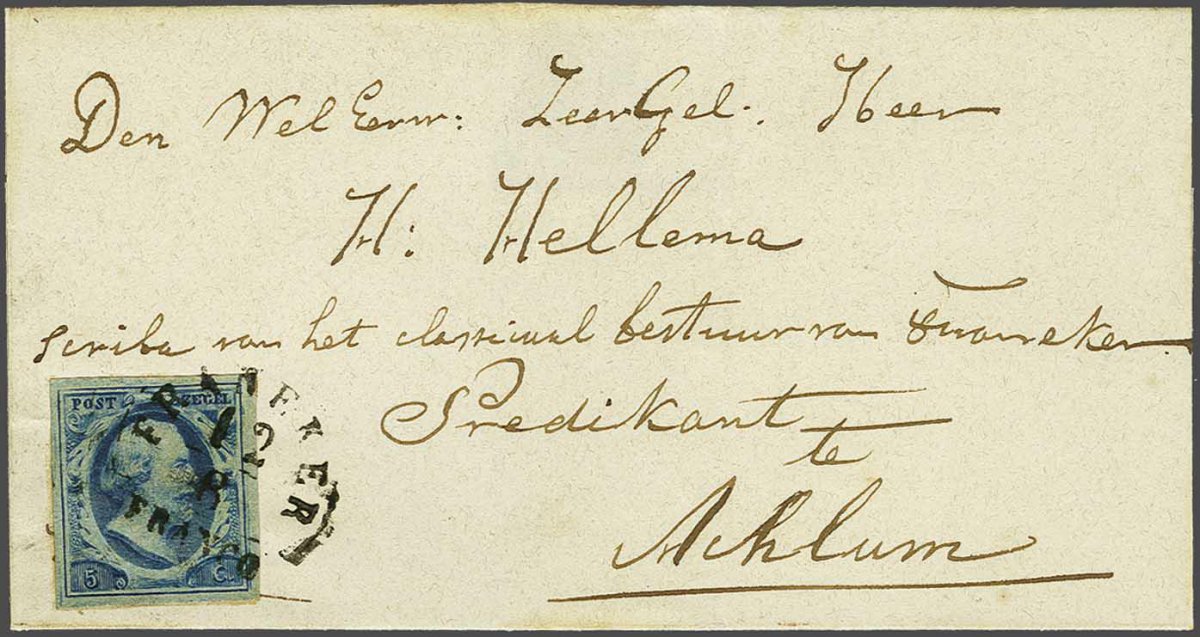 Den WelEerw: ZeerGel. Heer
H: Hellema
scriba van het classicaal bestuur van Franeker
Predikant
te
Achlum
POST ZEGEL
5 C.
FRANEKER
12
8
FRANCO